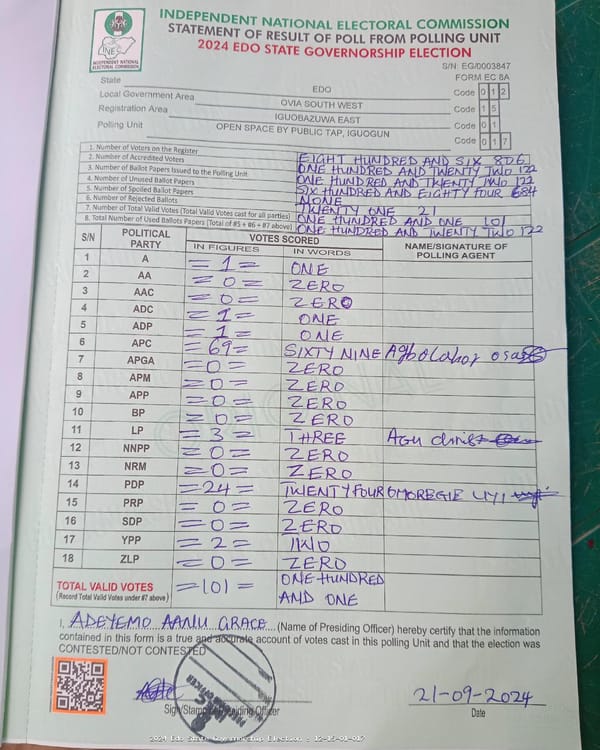 INDEPENDENT NATIONAL ELECTORAL COMMISSION
STATEMENT OF RESULT OF POLL FROM POLLING UNIT
2024 EDO STATE GOVERNORSHIP ELECTION
INEC
INDEPENDENT NATIONAL ELECTORAL COMMISSION
S/N: EG/0003847
FORM EC 8A
State EDO Code 0 1 2
Local Government Area OVIA SOUTH WEST Code 1 5
Registration Area IGUOBAZUWA EAST Code 0 1
Polling Unit OPEN SPACE BY PUBLIC TAP, IGUOGUN Code 0 1 7
1. Number of Voters on the Register EIGHT HUNDRED AND SIX 806
2. Number of Accredited Voters ONE HUNDRED AND TWENTY TWO 122
3. Number of Ballot Papers Issued to the Polling Unit ONE HUNDRED AND TWENTY TWO 122
4. Number of Unused Ballot Papers SIX HUNDRED AND EIGHTY FOUR 684
5. Number of Spoiled Ballot Papers NONE
6. Number of Rejected Ballots TWENTY ONE 21
7. Number of Total Valid Votes (Total Valid Votes cast for all parties) ONE HUNDRED AND ONE 101
8. Total Number of Used Ballots Papers (Total of #5 + #6 + #7 above) ONE HUNDRED AND TWENTY TWO 122
S/N POLITICAL PARTY VOTES SCORED NAME/SIGNATURE OF POLLING AGENT
IN FIGURES IN WORDS
1 A =1= ONE
2 AA =0= ZERO
3 AAC =0= ZERO
4 ADC =1= ONE
5 ADP =1= ONE
6 APC =69= SIXTY NINE Agbolahor osas
7 APGA =0= ZERO
8 APM =0= ZERO
9 APP =0= ZERO
10 BP =0= ZERO
11 LP =3= THREE AGU christ
12 NNPP =0= ZERO
13 NRM =0= ZERO
14 PDP =24= TWENTY FOUR OMOREGIE UYI
15 PRP =0= ZERO
16 SDP =0= ZERO
17 YPP =2= TWO
18 ZLP =0= ZERO
TOTAL VALID VOTES =101= ONE HUNDRED
(Record Total Valid Votes under #7 above) AND ONE
I, ADEYEMO AANU GRACE (Name of Presiding Officer) hereby certify that the information
contained in this form is a true and accurate account of votes cast in this polling Unit and that the election was
CONTESTED/NOT CONTESTED
21-09-2024
Sign/Stamp Presiding Officer Date
2024 Edo State Governorship Election : 12-15-01-017